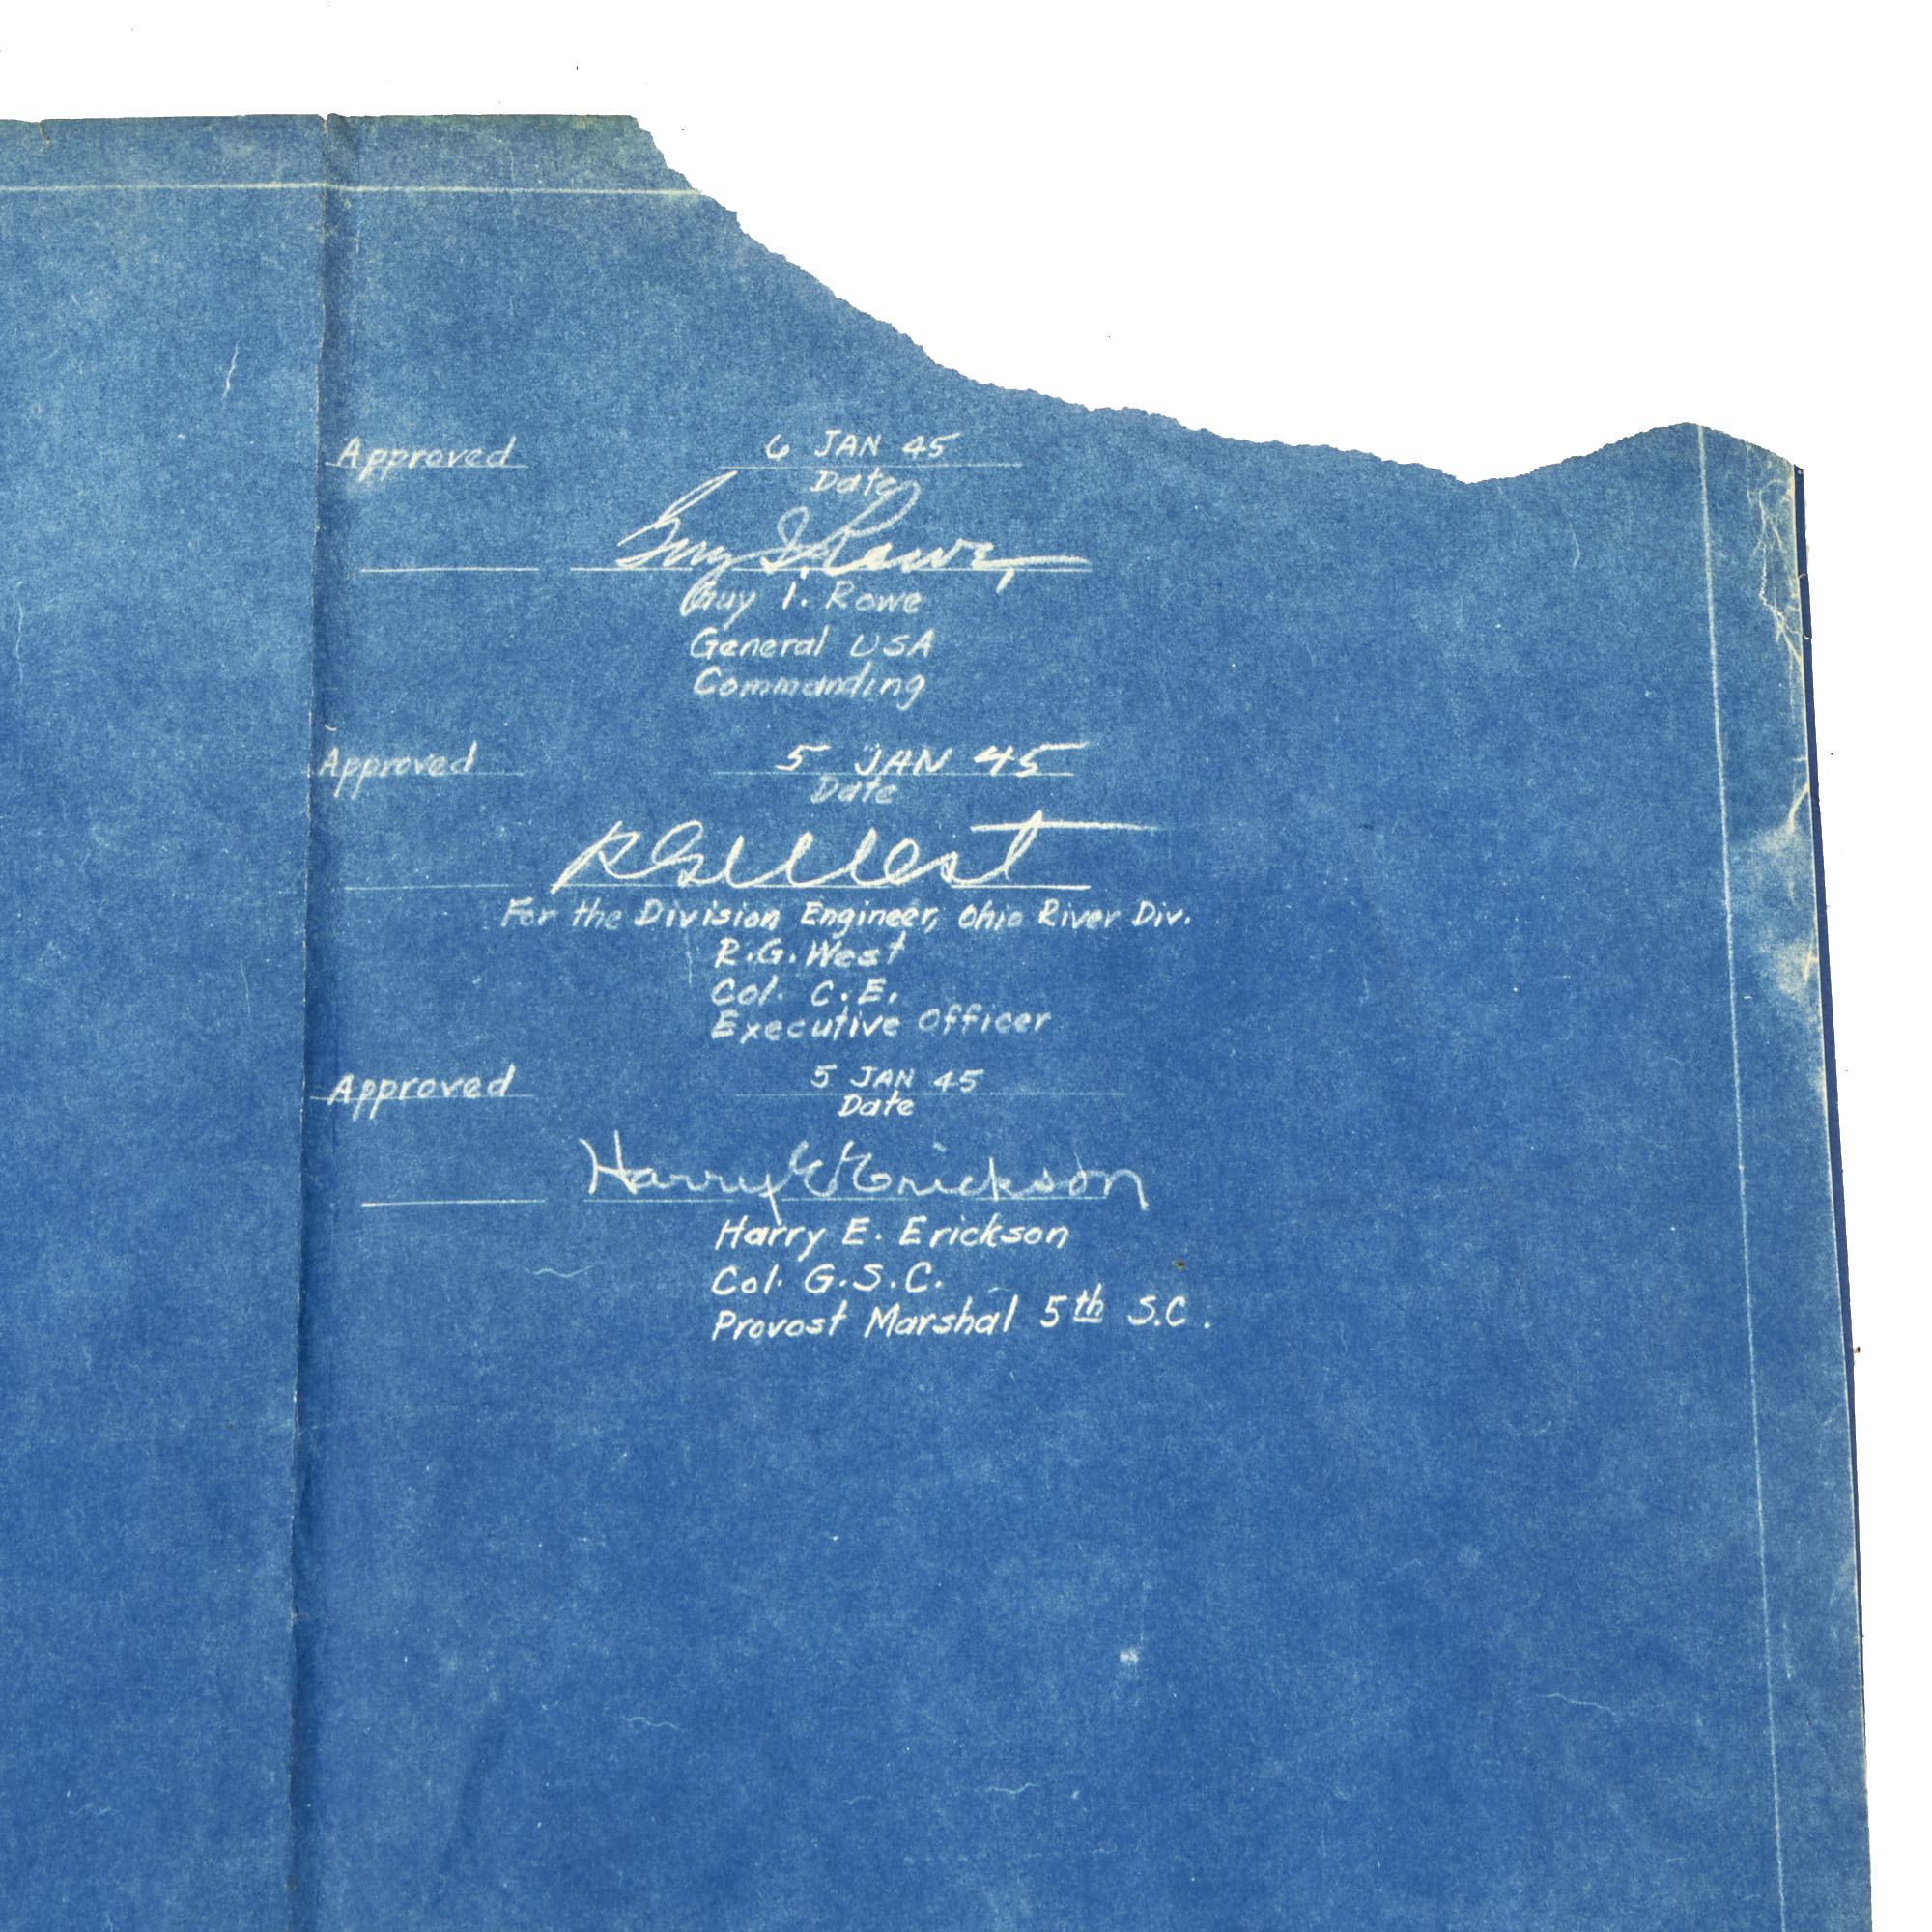 Approved 6 JAN 45
Date
Guy I. Rowe
Guy I. Rowe
General USA
Commanding
Approved 5 JAN 45
Date
RG West
For the Division Engineer, Ohio River Div.
R.G. West
Col. C.E.
Executive Officer
Approved 5 JAN 45
Date
Harry E Erickson
Harry E. Erickson
Col. G.S.C.
Provost Marshal 5th S.C.